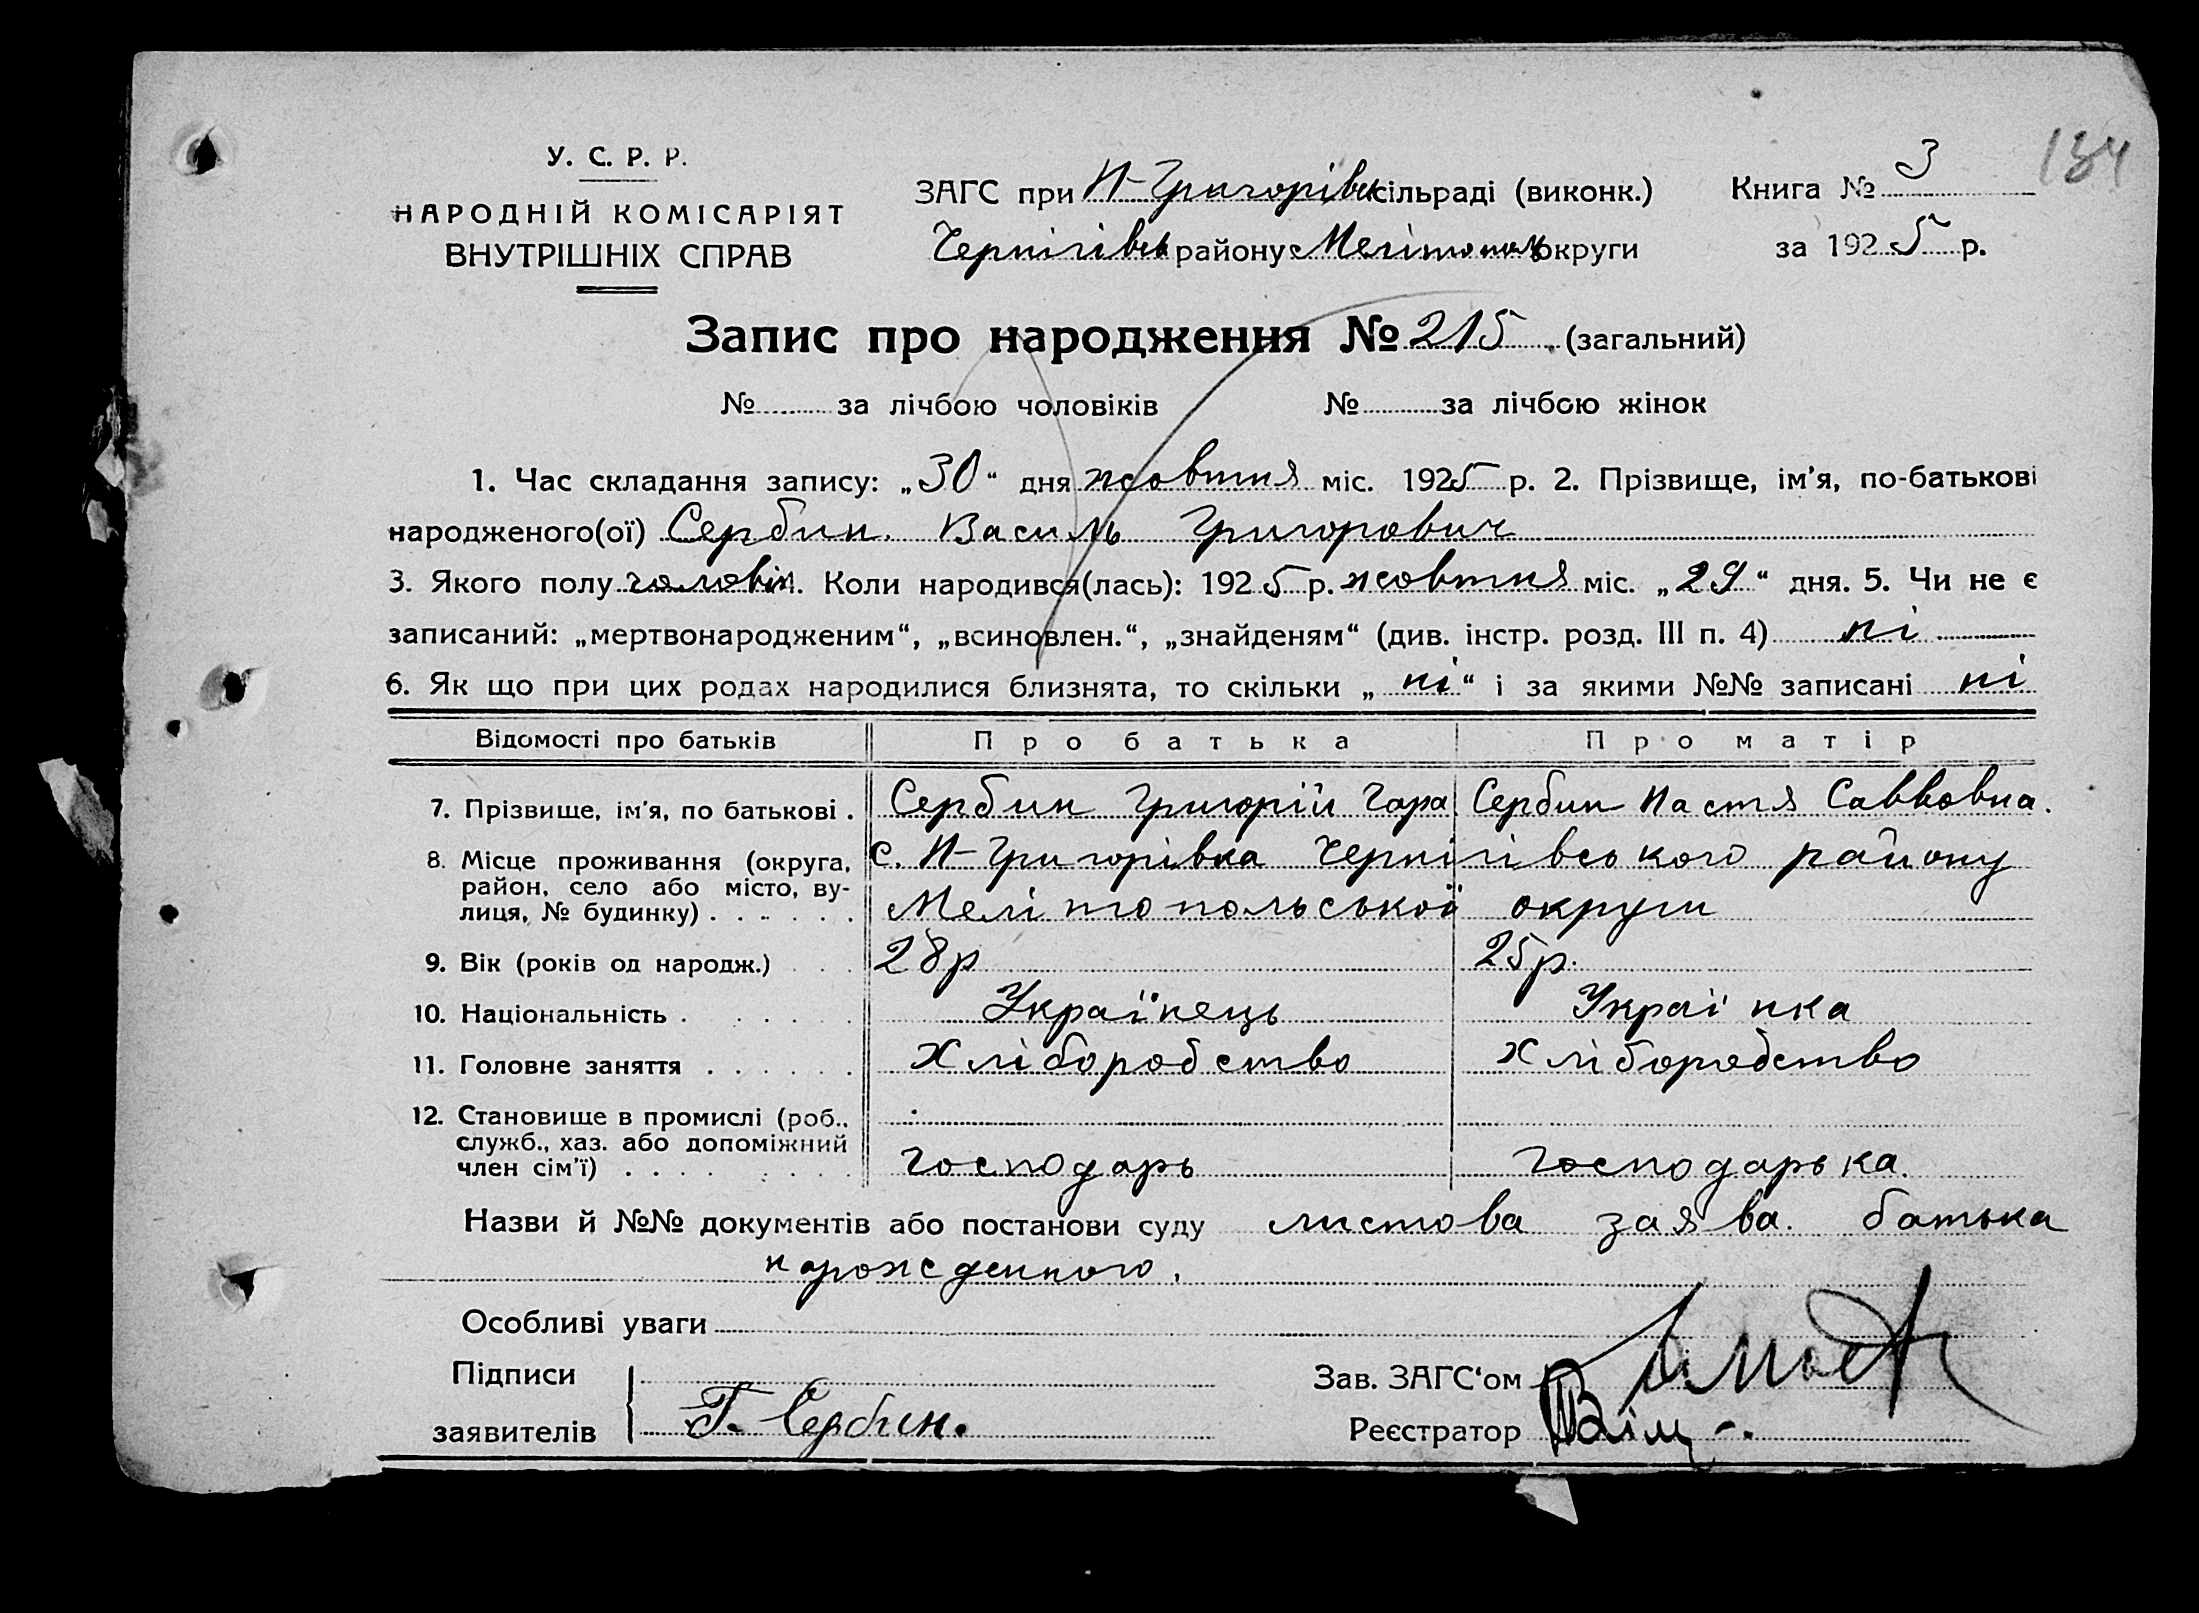 134
У. С. Р. Р.
НАРОДНІЙ КОМІСАРІЯТ
ВНУТРІШНІХ СПРАВ
ЗАГС при Н-Григорівск сільраді (виконк.) Книга № 3
Чернігівсь району Мелітополь округи за 1925 р.
Запис про народження № 215 (загальний)
№ за лічбою чоловіків № за лічбою жінок
1. Час складання запису: „30“ дня жовтня міс. 1925 р. 2. Прізвище, ім'я, по-батькові
народженого(ої) Сербин. Василь Григорович
3. Якого полу чоловік. Коли народився(лась): 1925 р. жовтня міс. „29“ дня. 5. Чи не є
записаний: „мертвонародженим“, „всиновлен.“, „знайденям“ (див. інстр. розд. III п. 4) ні
6. Як що при цих родах народилися близнята, то скільки „ні“ і за якими №№ записані ні
Відомості про батьків Про батька Про матір
7. Прізвище, ім'я, по батькові . Сербин Григорій Сербин Настя Саввовна.
8. Місце проживання (округа, с. Н-Григорівка Чернігівського району
район, село або місто, ву-
лиця, № будинку) . . . . . . Мелітопольської округи
9. Вік (років од народж.) . . 28р 25р.
10. Національність . . . . . Українець Українка
11. Головне заняття . . . . . . Хліборобство Хліборобство
12. Становище в промислі (роб..
служб., хаз. або допоміжний
член сім'ї) . . . . . . . . господарь господарька.
Назви й №№ документів або постанови суду листова заява. батька
нарожденного.
Особливі уваги
Підписи
заявителів Г. Сербин.
Зав. ЗАГС‘ом
Реєстратор